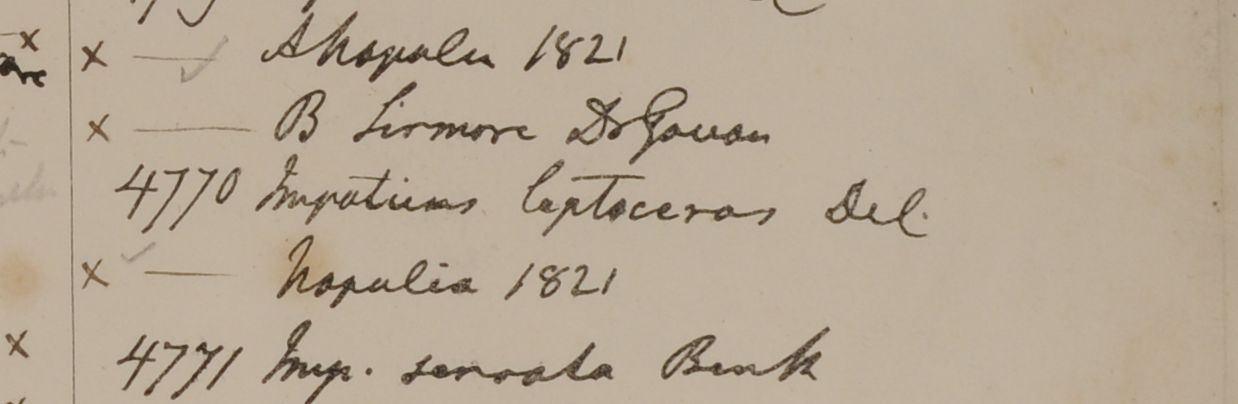 × — ✓ A Napalia 1821
× — B Sirmore Dr Govan
4770 Impatiens leptoceras Del.
× ✓ — Napalia 1821
4771 Imp. serrata Benth